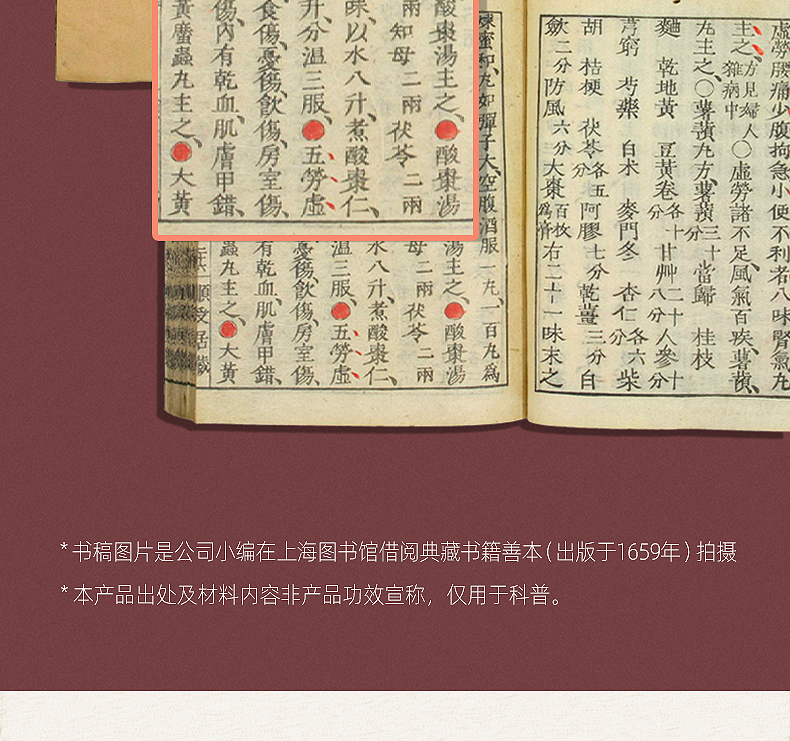 虛勞腰痛少腹拘急小便不利者八味腎氣丸
主之、方見婦人雜病中〇虛勞諸不足、風氣百疾、薯蕷
丸主之、〇薯蕷丸方、薯蕷三十分 當歸 桂枝
麯 乾地黃 豆黃卷各十分 甘艸二十八分 人參十分
芎窮 芍藥 白朮 麥門冬 杏仁各六分 柴
胡 桔梗 茯苓各五分 阿膠七分 乾薑三分 白
歛二分 防風六分 大棗百枚為膏 右二十一味末之
煉蜜和、丸如彈子大、空腹酒服一丸、一百丸為
酸棗湯主之、酸棗湯
兩 知母二兩 茯苓二兩
味以水八升、煮酸棗仁、
升分溫三服、五勞虛
食傷、憂傷、飲傷、房室傷、
傷、內有乾血、肌膚甲錯、
黃䗪蟲丸主之、大黃
湯主之、酸棗湯
母二兩 茯苓二兩
水八升、煮酸棗仁、
溫三服、五勞虛
憂傷、飲傷、房室傷、
有乾血、肌膚甲錯、
蟲丸主之、大黃
*书稿图片是公司小编在上海图书馆借阅典藏书籍善本(出版于1659年)拍摄
*本产品出处及材料内容非产品功效宣称，仅用于科普。